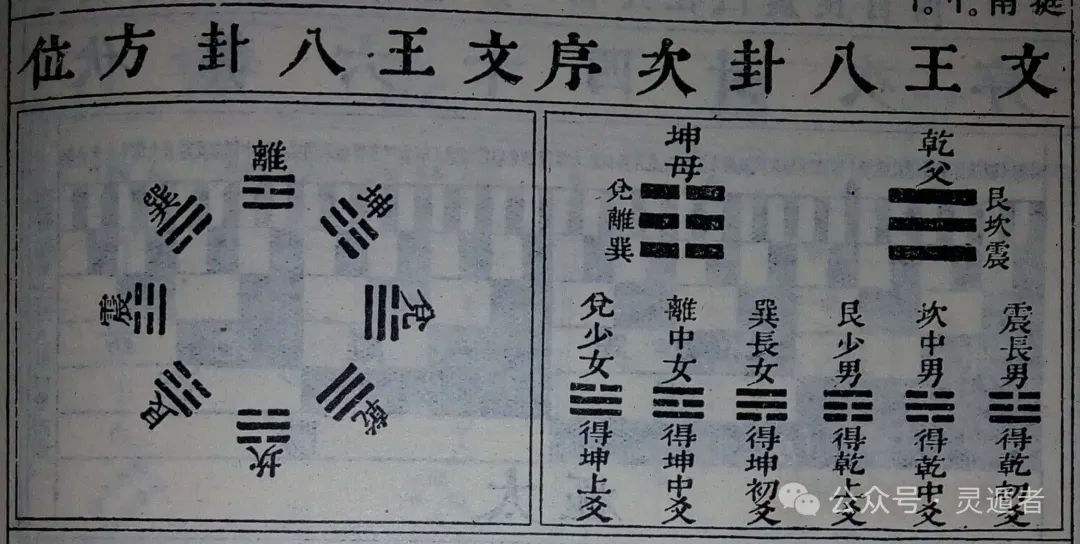 文王八卦次序
乾父
艮坎震
坤母
兌離巽
震長男
得乾初爻
坎中男
得乾中爻
艮少男
得乾上爻
巽長女
得坤初爻
離中女
得坤中爻
兌少女
得坤上爻
文王八卦方位
離
坤
兌
乾
坎
艮
震
巽
公众号 · 灵遁者